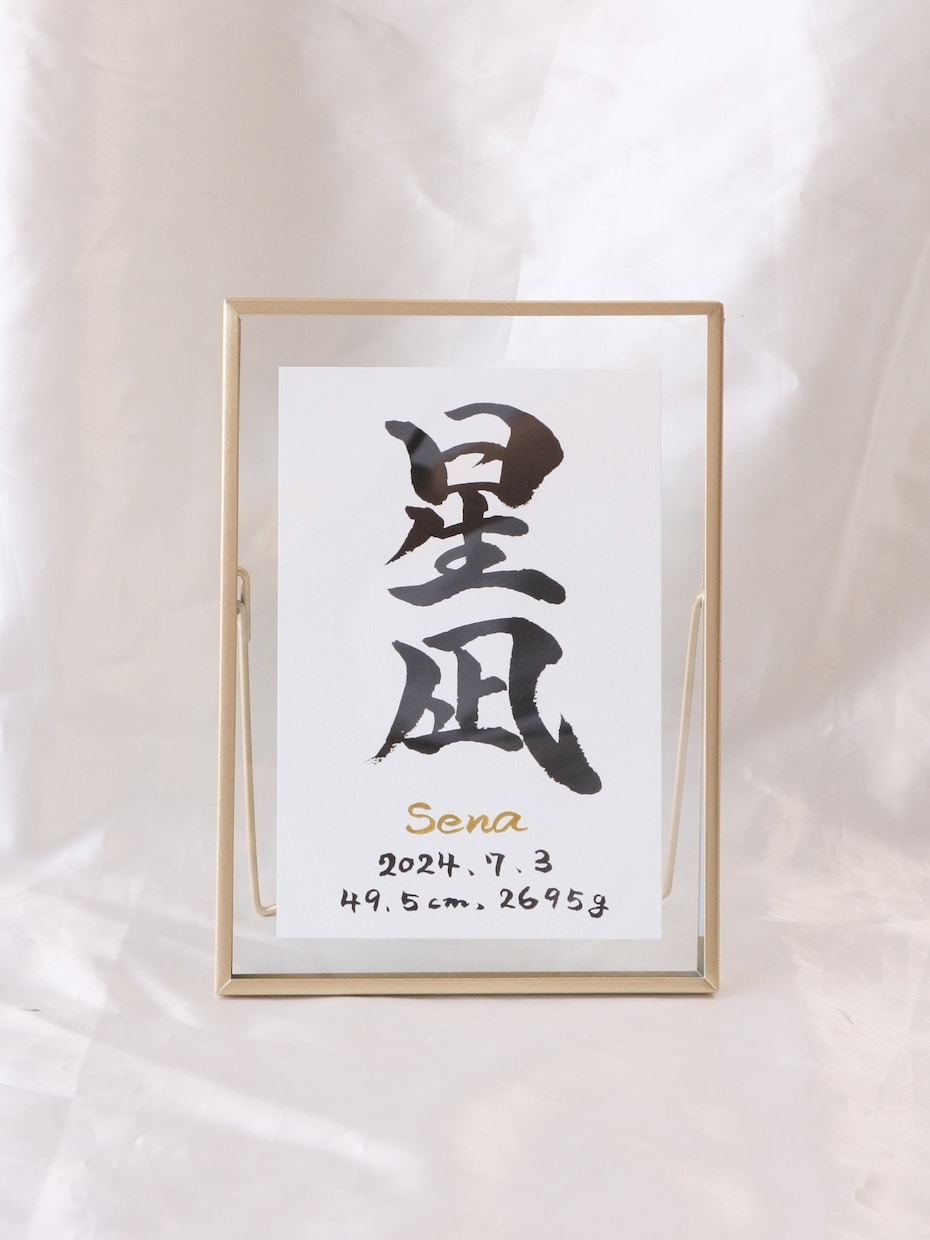 星凪
Sena
2024.7.3
49.5cm, 2695g